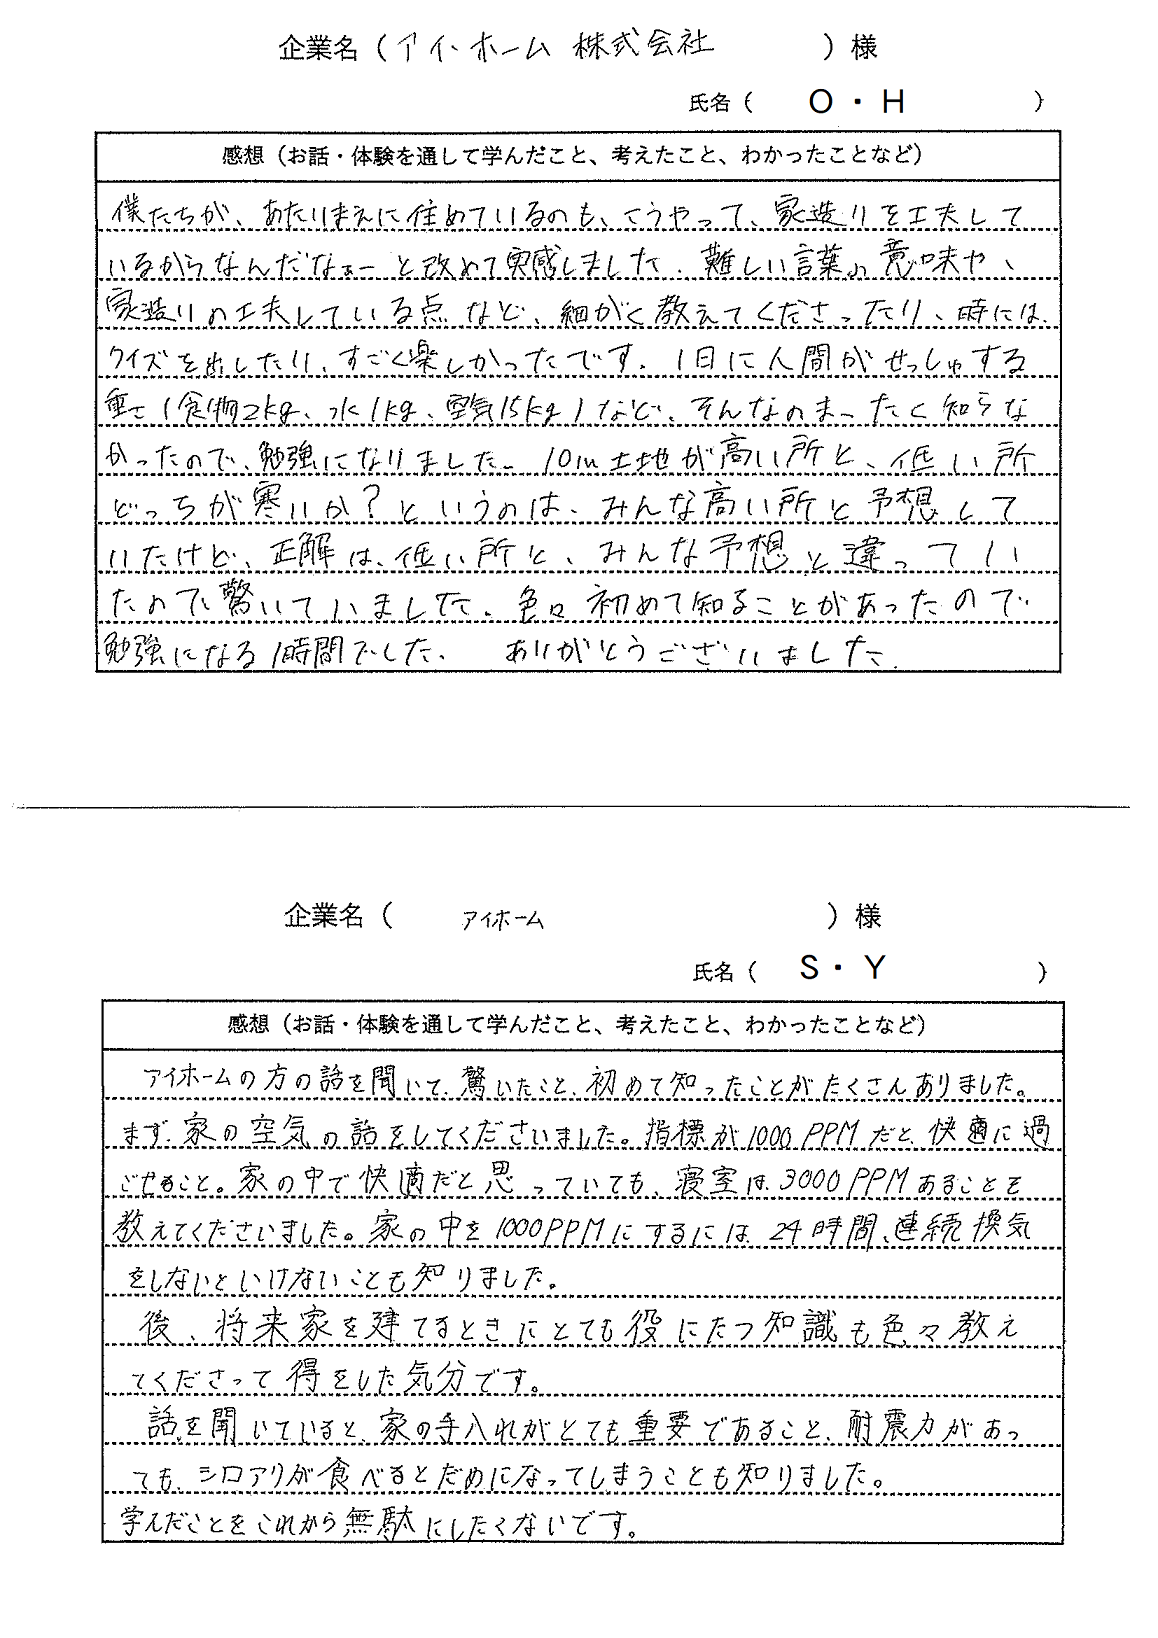 企業名（アイ・ホーム 株式会社）様
氏名（ O・H ）
感想（お話・体験を通して学んだこと、考えたこと、わかったことなど）
僕たちが、あたりまえに住めているのも、こうやって、家造りを工夫して
いるからなんだなぁーと改めて実感しました。難しい言葉の意味や、
家造りの工夫している点など、細かく教えてくださったり、時には、
クイズを出したり、すごく楽しかったです。1日に人間がせっしゅする
重さ(食物2kg、水1kg、空気15kg)など、そんなのまったく知らな
かったので、勉強になりました。10m土地が高い所と、低い所
どっちが寒いか?というのは、みんな高い所と予想して
いたけど、正解は、低い所と、みんな予想と違ってい
たので驚いていました。色々初めて知ることがあったので
勉強になる1時間でした。 ありがとうございました。
企業名（ アイホーム ）様
氏名（ S・Y ）
感想（お話・体験を通して学んだこと、考えたこと、わかったことなど）
アイホームの方の話を聞いて、驚いたこと、初めて知ったことがたくさんありました。
まず、家の空気の話をしてくださいました。指標が1000PPMだと、快適に過
ごせること。家の中で快適だと思っていても、寝室は3000PPMあることを
教えてくださいました。家の中を1000PPMにするには、24時間、連続換気
をしないといけないことも知りました。
後、将来家を建てるときにとても役にたつ知識も色々教え
てくださって得をした気分です。
話を聞いていると、家の手入れがとても重要であること、耐震力があっ
ても、シロアリが食べるとだめになってしまうことも知りました。
学んだことをこれから無駄にしたくないです。